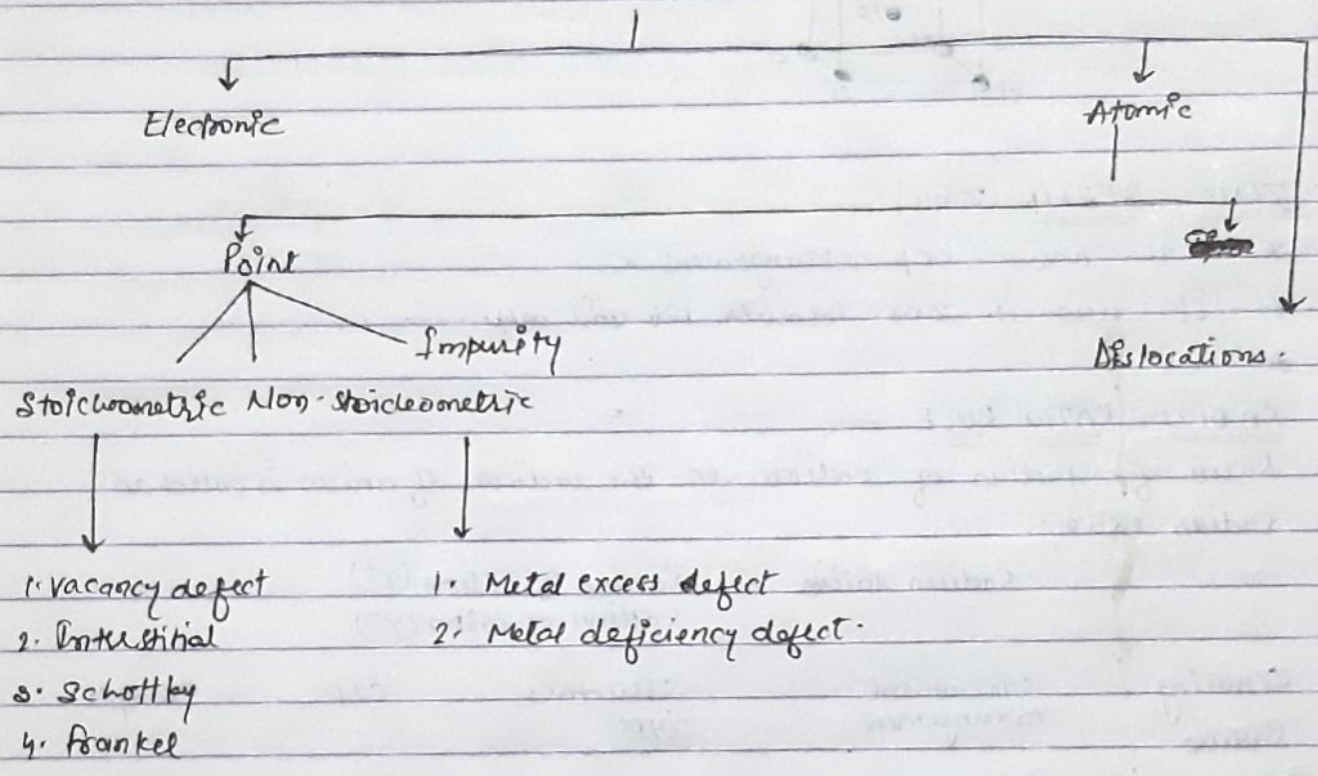 Electronic
Atomic
Point
Impurity
Dislocations.
Stoichoometric Non-stoicleometric
1. vacancy defect
2. Interstitial
3. Schottky
4. frankel
1. Metal excess defect
2. Metal deficiency defect.